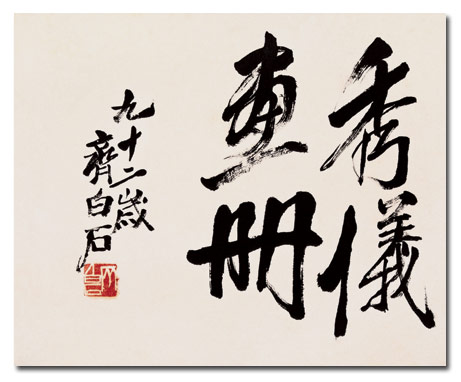 秀儀
畫冊
九十二歲
齊白石